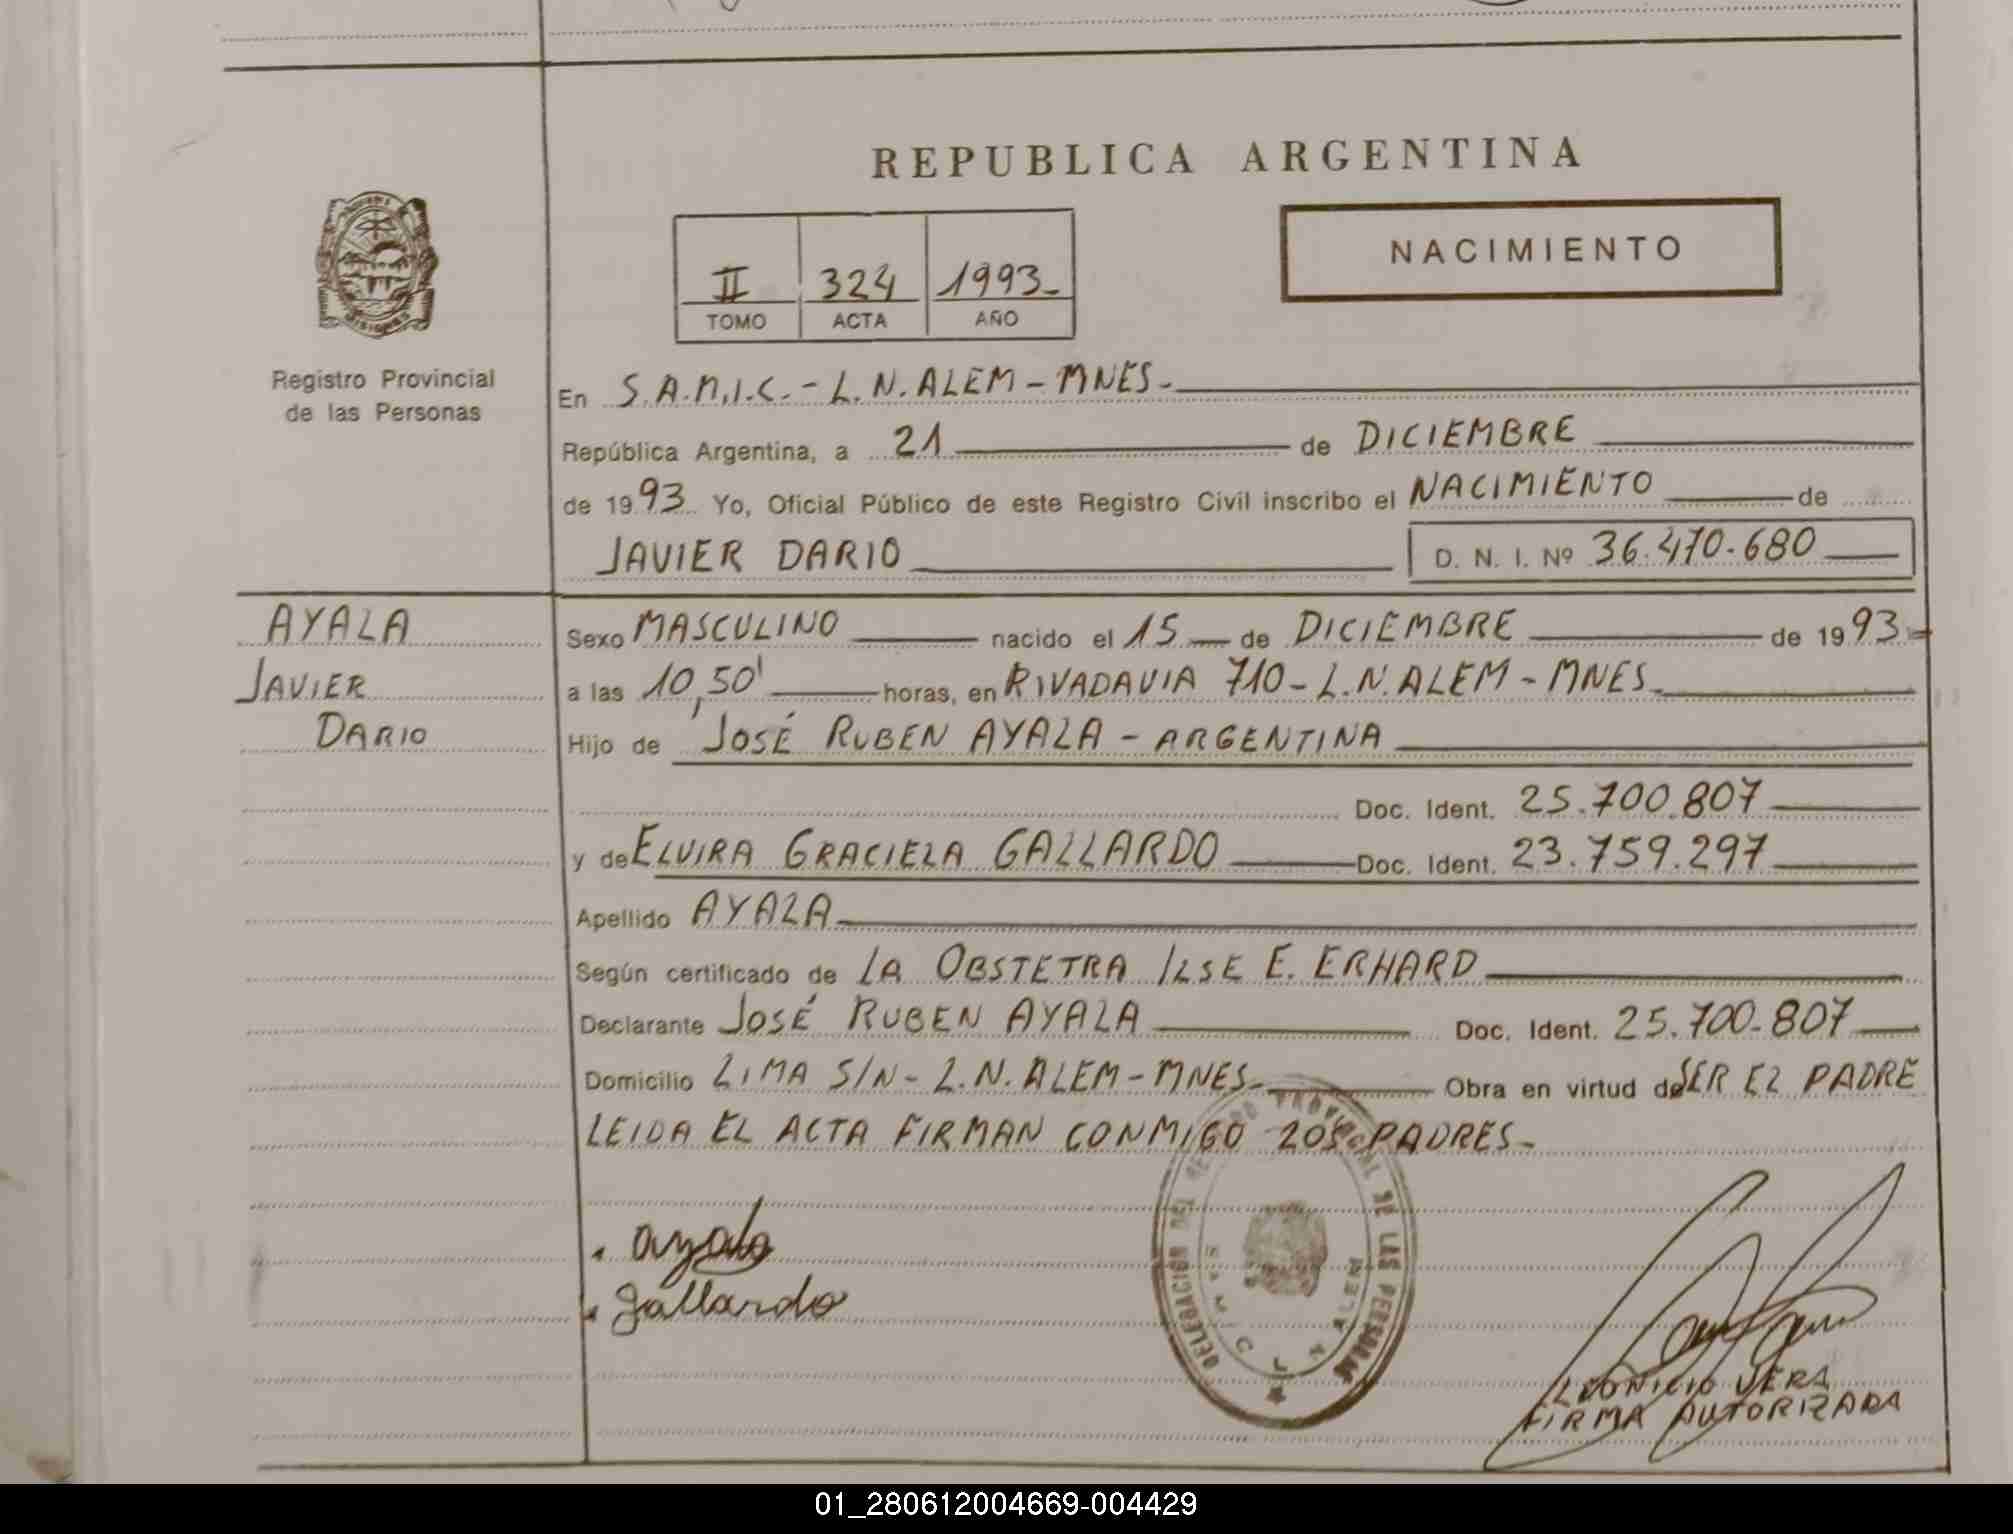 REPUBLICA ARGENTINA
NACIMIENTO
II 324 1993-
TOMO ACTA AÑO
MISIONES
Registro Provincial
de las Personas
En S.A.M.I.C.- L.N. ALEM - MNES-
República Argentina, a 21 de DICIEMBRE
de 1993 Yo, Oficial Público de este Registro Civil inscribo el NACIMIENTO de
JAVIER DARIO D. N. I. Nº 36.470.680
AYALA
JAVIER
DARIO
Sexo MASCULINO nacido el 15 de DICIEMBRE de 1993-
a las 10,50' horas, en RIVADAVIA 710- L.N. ALEM - MNES-
Hijo de JOSÉ RUBEN AYALA - ARGENTINA
Doc. Ident. 25.700.807
y de ELVIRA GRACIELA GALLARDO Doc. Ident. 23.759.297
Apellido AYALA
Según certificado de LA OBSTETRA ILSE E. ERHARD
Declarante JOSÉ RUBEN AYALA Doc. Ident. 25.700.807
Domicilio LIMA S/N- L.N. ALEM - MNES- Obra en virtud de SER EL PADRE
LEIDA EL ACTA FIRMAN CONMIGO LOS PADRES-
Ayala
Gallardo
DELEGACION DEL REGISTRO PROVINCIAL DE LAS PERSONAS
SAMIC L N ALEM
LEONICIO VERA
FIRMA AUTORIZADA
01_280612004669-004429